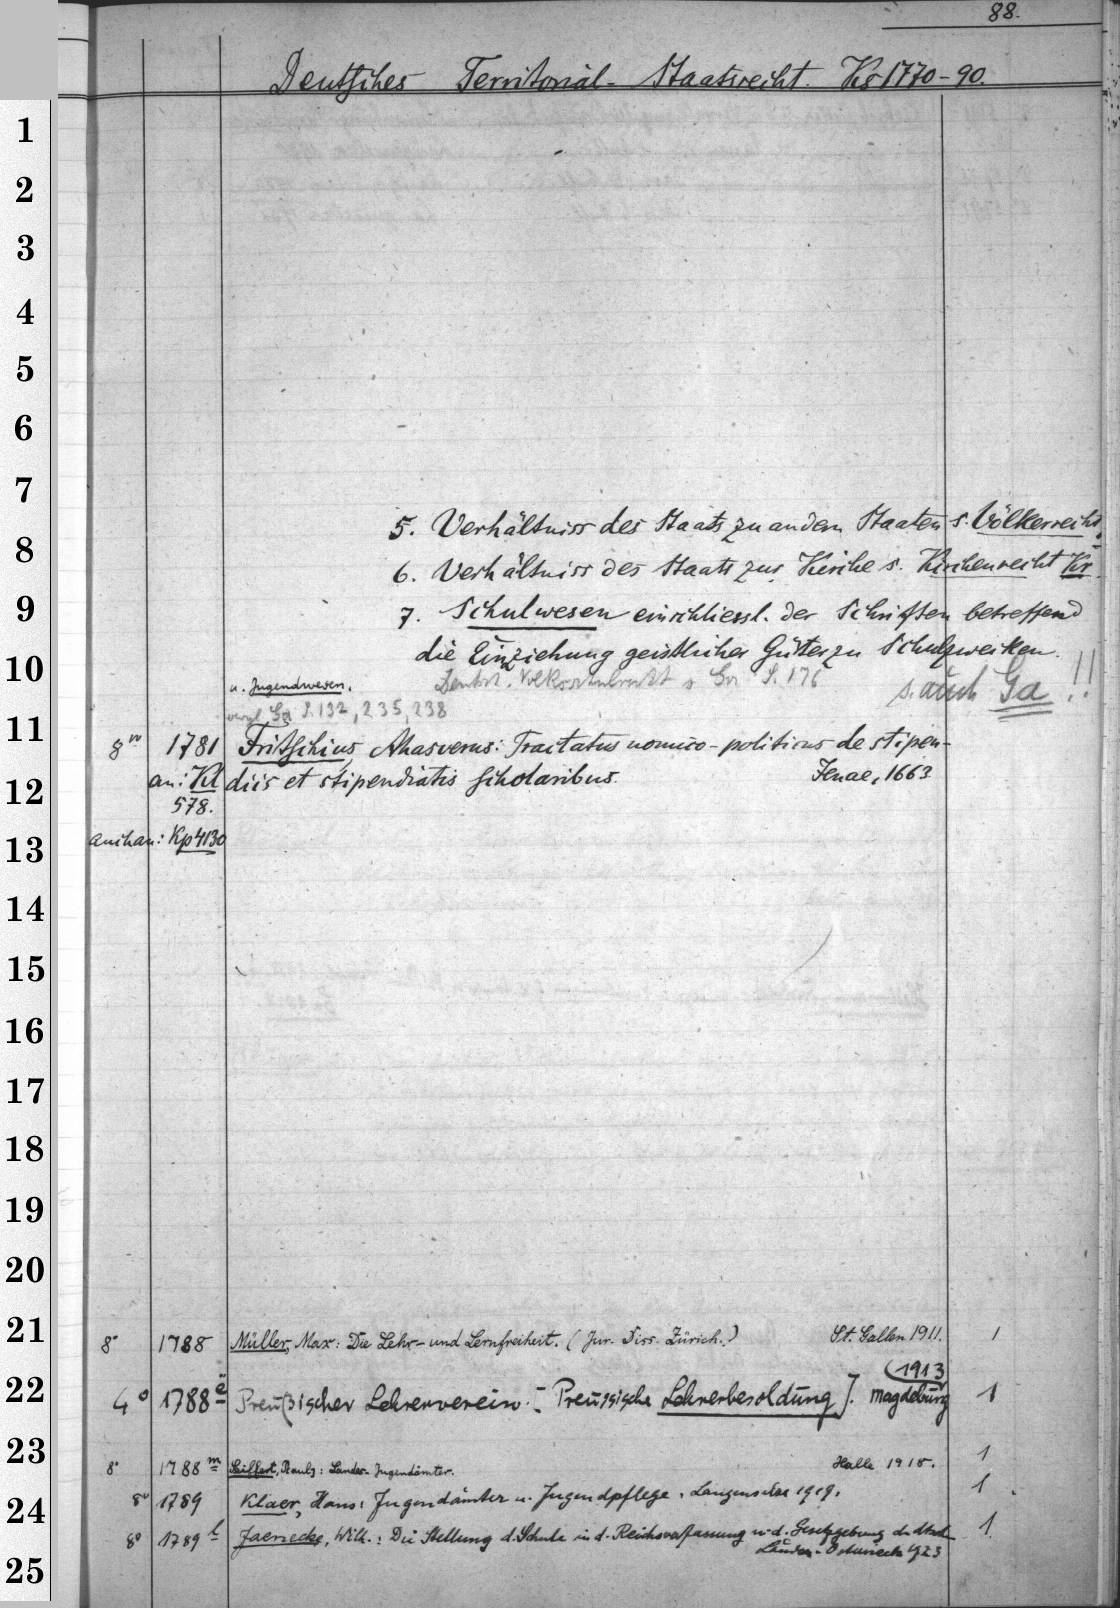 88.
Deutsches Territorial-Staatsrecht. Kr 1770-90.
1
2
3
4
5
6
7
5. Verhältniss des Staats zu andern Staaten s. Völkerrecht.
8
6. Verhältniss des Staats zur Kirche s. Kirchenrecht Kr.
9
7. Schulwesen einschliessl. der Schriften betreffend
die Einziehung geistlicher Güter zu Schulzwecken.
10
u. Jugendwesen. S. 176 s. auch Ga !!
Ga S. 132, 235, 238
11
8º 1781 Fritschius Ahasverus: Tractatus nomico-politicus de stipen-
an: Kl diis et stipendiatis scholaribus. Jenae, 1663
12
578.
auch an: Kp 4130
13
14
15
16
17
18
19
20
21
8º 1788 Müller, Max: Die Lehr- und Lernfreiheit. (Jur. Diss. Zürich.) St. Gallen 1911. 1
(1913
22
4º 1788 e Preußischer Lehrerverein: [Preussische Lehrerbesoldung]. Magdeburg 1
23
8º 1788 m Seiffert, Paul: Landes-Jugendämter. Halle 1918. 1
24
8º 1789 Klaer, Hans: Jugendämter u. Jugendpflege. Langensalza 1919. 1
8º 1789 l Jaenecke, Will.: Die Stellung d. Schule in d. Reichsverfassung u. d. Gesetzgebung d. dtsch 1
Länder. Osterwieck 1923
25